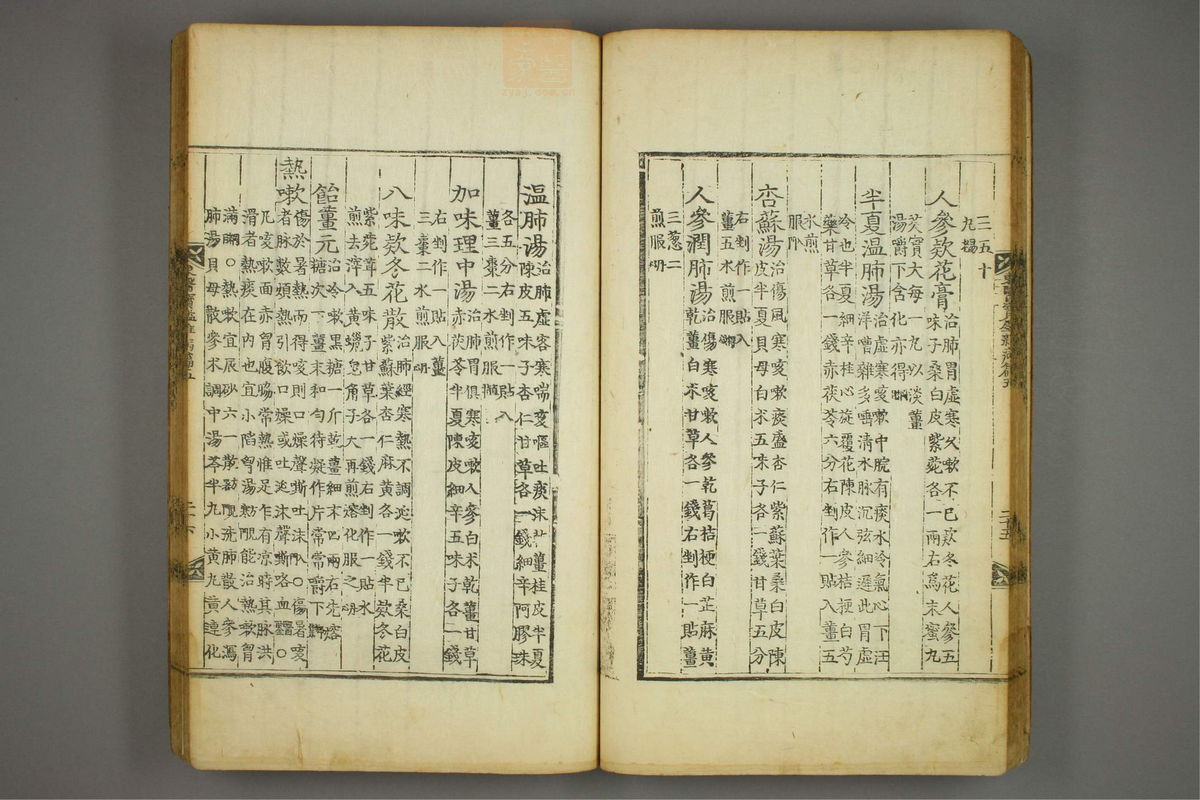 三五十
丸
人參款花膏治肺胃虛寒久嗽不已款冬花人參五
味子桑白皮紫菀各一兩右爲末蜜丸
芡實大每一丸以淡薑
湯嚼下含化亦得
半夏溫肺湯治虛寒咳嗽中脘有痰水冷氣心下汪
洋嘈雜多唾淸水脉沉弦細遲此胃虛
冷也半夏細辛桂心旋覆花陳皮人參桔梗白芍
藥甘草各一錢赤茯苓六分右剉作一貼入薑五
水煎
服
杏蘇湯治傷風寒咳嗽痰盛杏仁紫蘇葉桑白皮陳
皮半夏貝母白朮五味子各一錢甘草五分
右剉作一貼入
薑五水煎服
人參潤肺湯治傷寒咳嗽人參乾葛桔梗白芷麻黃
乾薑白朮甘草各一錢右剉作一貼薑
三葱二
煎服
二十五
溫肺湯治肺虛客寒喘咳嘔吐痰沫薑桂皮半夏
陳皮五味子杏仁甘草各一錢細辛阿膠珠
各五分右剉作一貼入
薑三棗二水煎服
加味理中湯治肺胃俱寒咳嗽人參白朮乾薑甘草
赤茯苓半夏陳皮細辛五味子各一錢
右剉作一貼入薑
三棗二水煎服
八味款冬花散治肺經寒熱不調涎嗽不已桑白皮
紫蘇葉杏仁麻黃各一錢半款冬花
紫菀茸五味子甘草各一錢右剉作一貼水
煎去滓入黃蠟皂角子大再煎熔化服之
飴薑元治冷嗽黑糖一斤乾薑細末四兩右先熔
糖次下薑末和勻待凝作片常常嚼下
熱嗽傷於暑熱而得咳則口燥聲嘶吐沫○傷暑咳
者脉數煩熱引飮口燥或吐涎沫聲嘶咯血○
凡咳嗽面赤胸腹脇常熱惟足乍有凉時其脉洪
滑者熱痰在內也宜小陷胸湯能治熱嗽胸
滿○熱嗽宜辰砂六一散洗肺散人參瀉
肺湯貝母散參朮調中湯芩半丸小黃丸黃連化
二十六